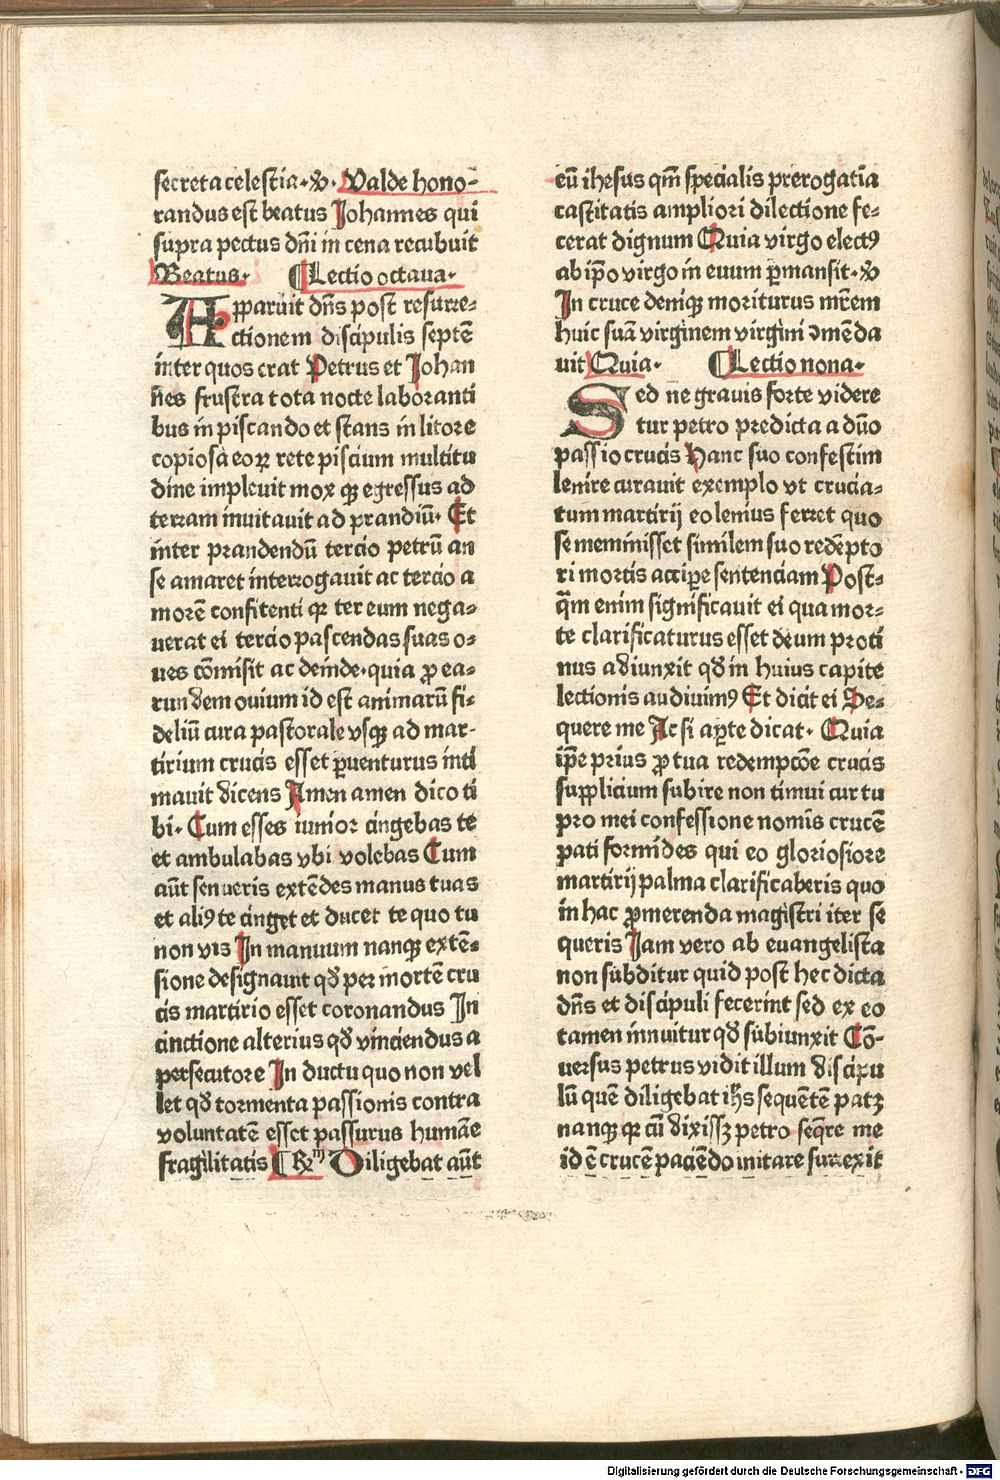 secreta celestia. ꝟ. Valde hono-
randus est beatus Johannes qui
supra pectus dn̄i in cena recubuit
Beatus. ¶Lectio octaua.
Apparuit dn̄s post resurre-
ctionem discipulis septē
inter quos erat Petrus et Johan
nes frustra tota nocte laboranti
bus in piscando et stans in litore
copiosa eoꝝ rete piscium multitu
dine impleuit mox qꝫ egressus ad
terram inuitauit ad prandiū. Et
inter prandendū tercio petrū an
se amaret interrogauit ac tercio a
morē confitenti qꝛ ter eum nega-
uerat ei tercio pascendas suas o-
ues cōmisit ac deinde. quia ꝓ ea-
rundem ouium id est animarū fi-
deliū cura pastorale vsqꝫ ad mar-
tirium crucis esset ꝑuenturus inti
mauit dicens Amen amen dico ti
bi. Cum esses iunior cingebas te
et ambulabas vbi volebas Cum
aūt senueris extēdes manus tuas
et aliꝰ te cinget et ducet te quo tu
non vis In manuum nanqꝫ extē-
sione designauit qđ per mortē cru
cis martirio esset coronandus In
cinctione alterius qđ vinciendus a
persecutore In ductu quo non vel
let qđ tormenta passionis contra
voluntatē esset passurus humāe
fragilitatis ¶Rm Diligebat aūt
eū ihesus qm̄ specialis prerogatia
castitatis ampliori dilectione fe-
cerat dignum Quia virgo electꝰ
ab ip̄o virgo in euum ꝑmansit. ꝟ
In cruce deniqꝫ moriturus mr̄em
huic suā virginem virgini ꝯmēda
uit Quia. ¶Lectio nona.
Sed ne grauis forte videre
tur petro predicta a dn̄o
passio crucis Hanc suo confestim
lenire curauit exemplo vt crucia-
tum martirij eo lenius ferret quo
se meminisset similem suo redēpto
ri mortis accipere sentenciam Post-
q̄m enim significauit ei qua mor-
te clarificaturus esset deum proti
nus adiunxit qđ in huius capite
lectionis audiuimꝰ Et dicit ei Se-
quere me Ac si aꝑte dicat. Quia
ip̄e prius ꝓ tua redempcōe crucis
supplicium subire non timui cur tu
pro mei confessione nominis crucē
pati formides qui eo gloriosiore
martirij palma clarificaberis quo
in hac ꝓmerenda magistri iter se
queris Jam vero ab euangelista
non subditur quid post hec dicta
dn̄s et discipuli fecerint sed ex eo
tamen innuitur qđ subiunxit Cō-
uersus petrus vidit illum discipu
lū quē diligebat ih̄s sequētē patꝫ
nanqꝫ qꝛ cū dixissꝫ petro seq̄re me
id ē crucē paciēdo imitare surrexit
Digitalisierung gefördert durch die Deutsche Forschungsgemeinschaft - DFG